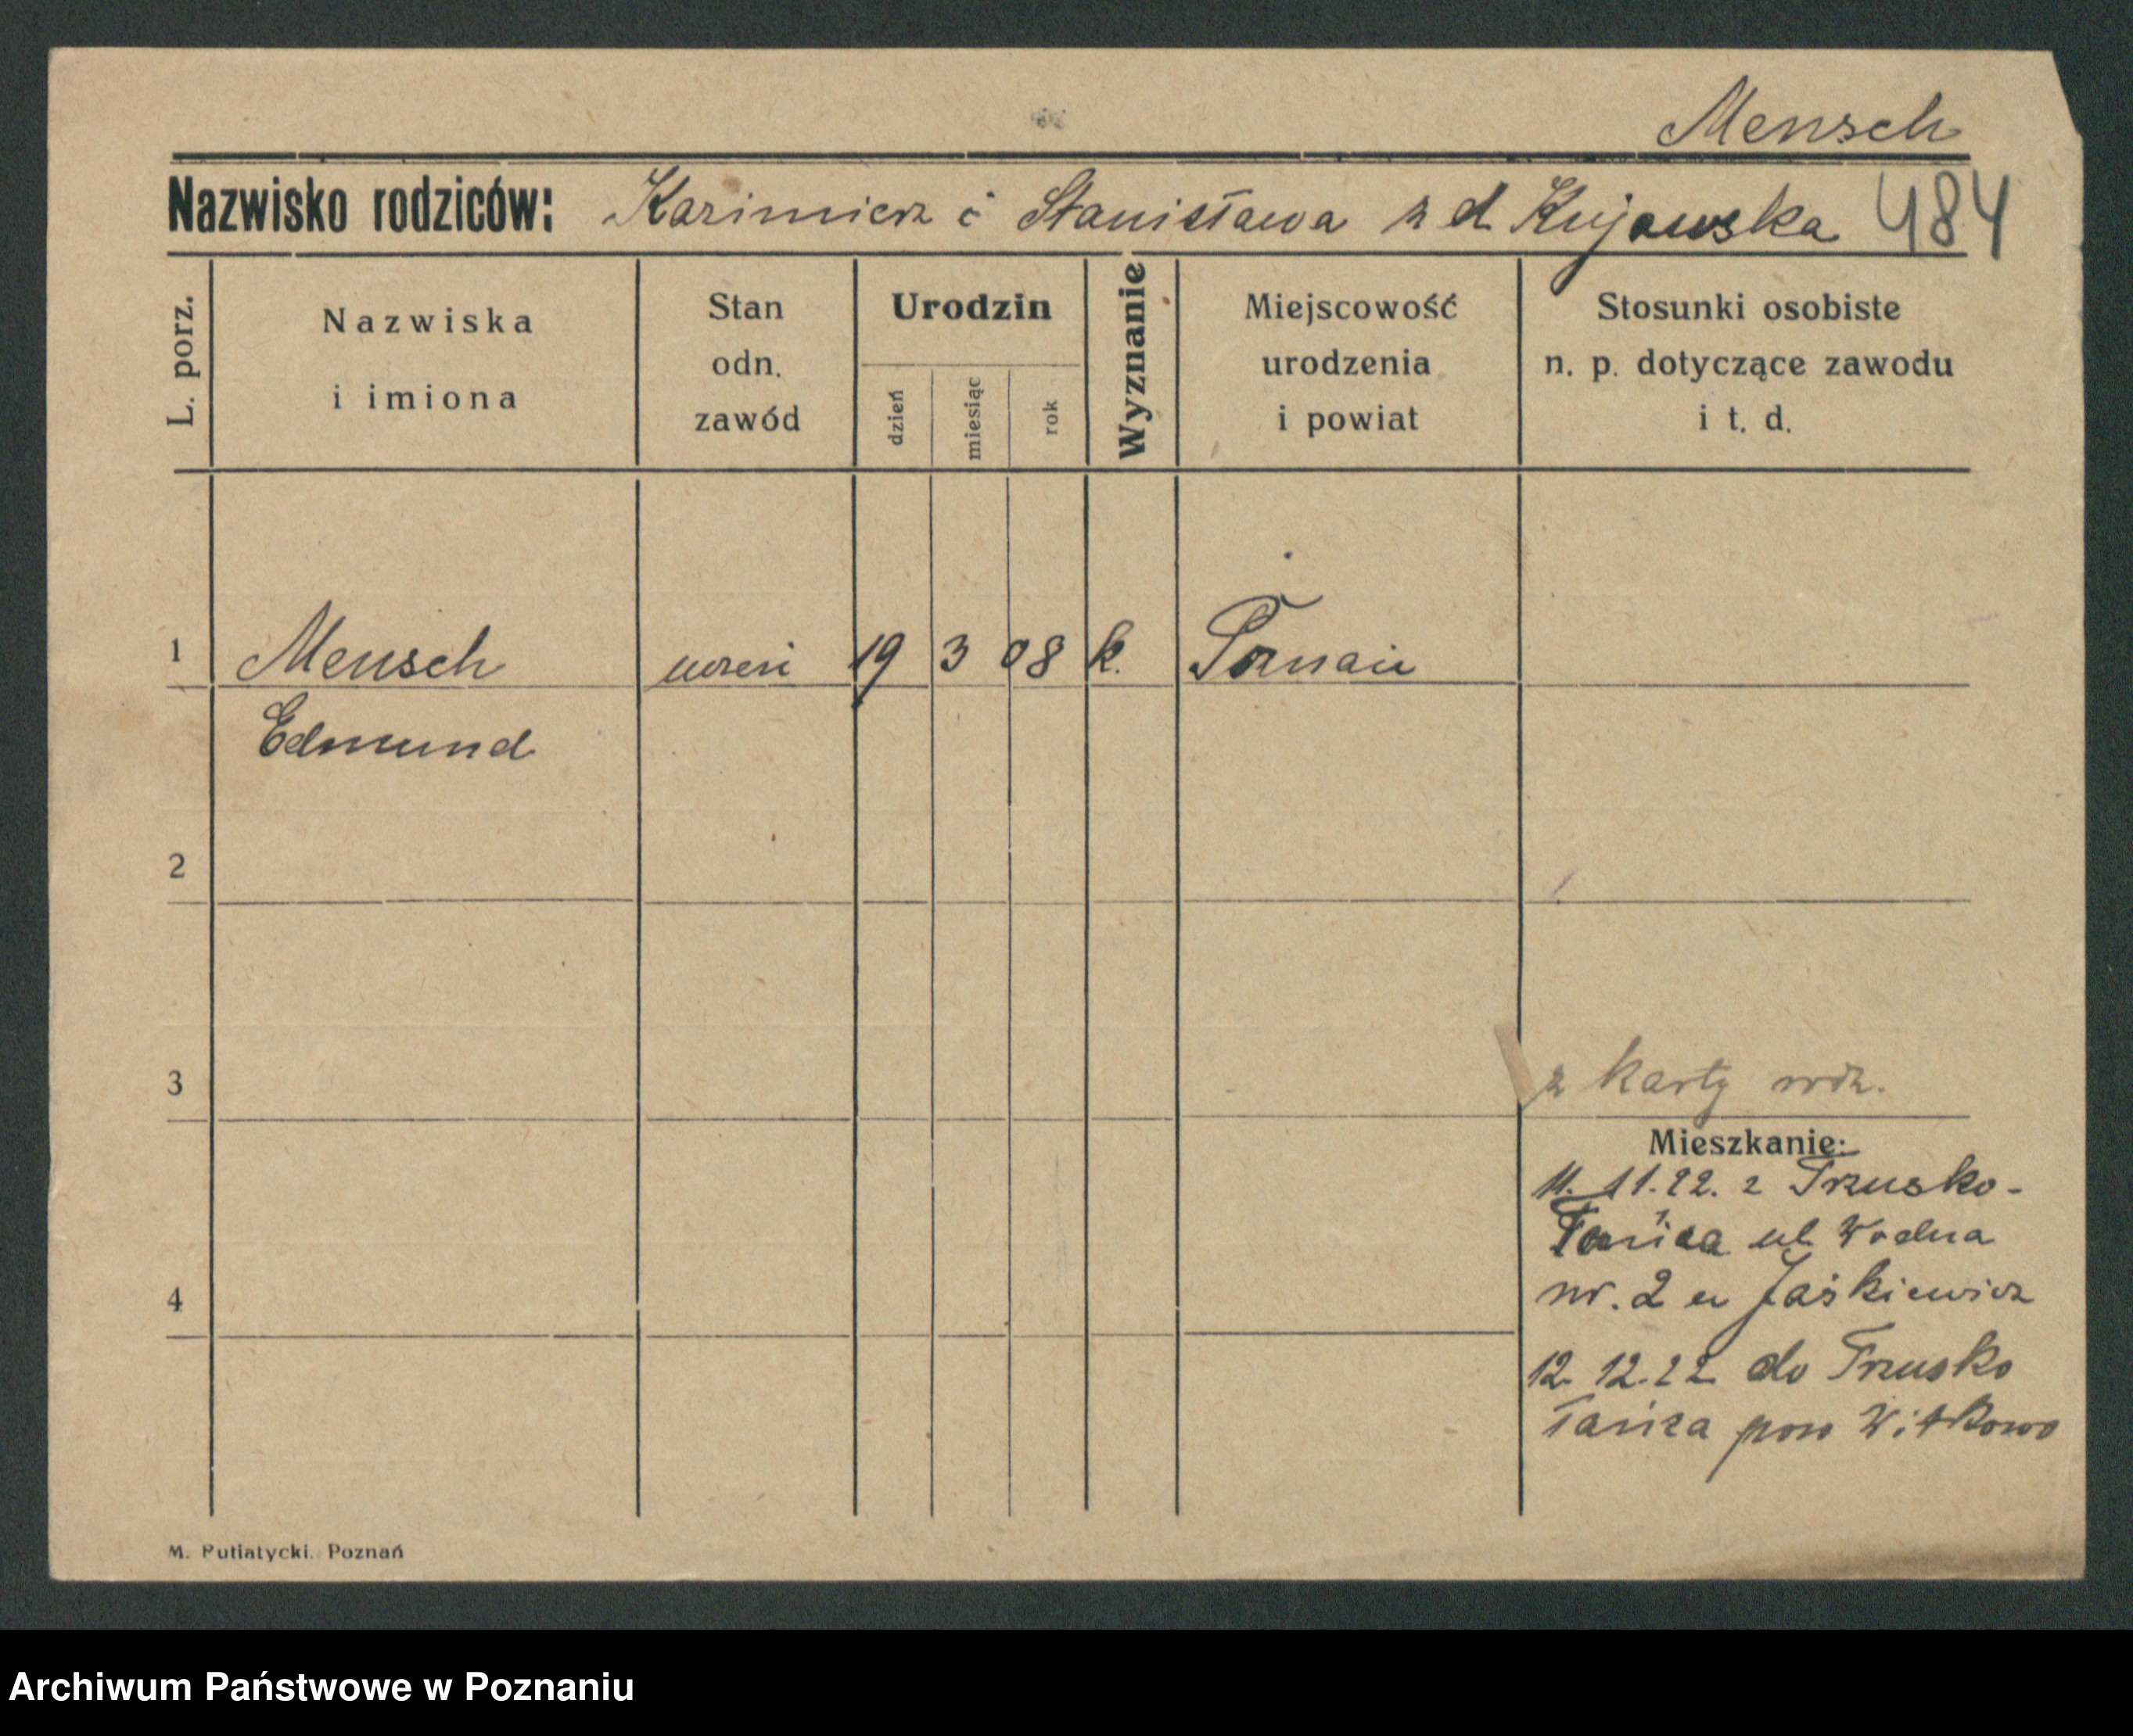 Mensch
Nazwisko rodziców: Kazimierz i Stanisława z d Kujawska 484
L. porz.
Nazwiska
i imiona
Stan
odn.
zawód
Urodzin
dzień
miesiąc
rok
Wyznanie
Miejscowość
urodzenia
i powiat
Stosunki osobiste
n. p. dotyczące zawodu
i t. d.
1 Mensch uczeń 19 3 08 k. Poznań
Edmund
2
3
z karty rodz.
Mieszkanie:
11. 11. 22. z Trzusko-
łańca ul Wodna
nr. 2 u Jaśkiewicz
4
12. 12. 22 do Trzusko
łańca pow Witkowo
M. Putiatycki. Poznań
Archiwum Państwowe w Poznaniu